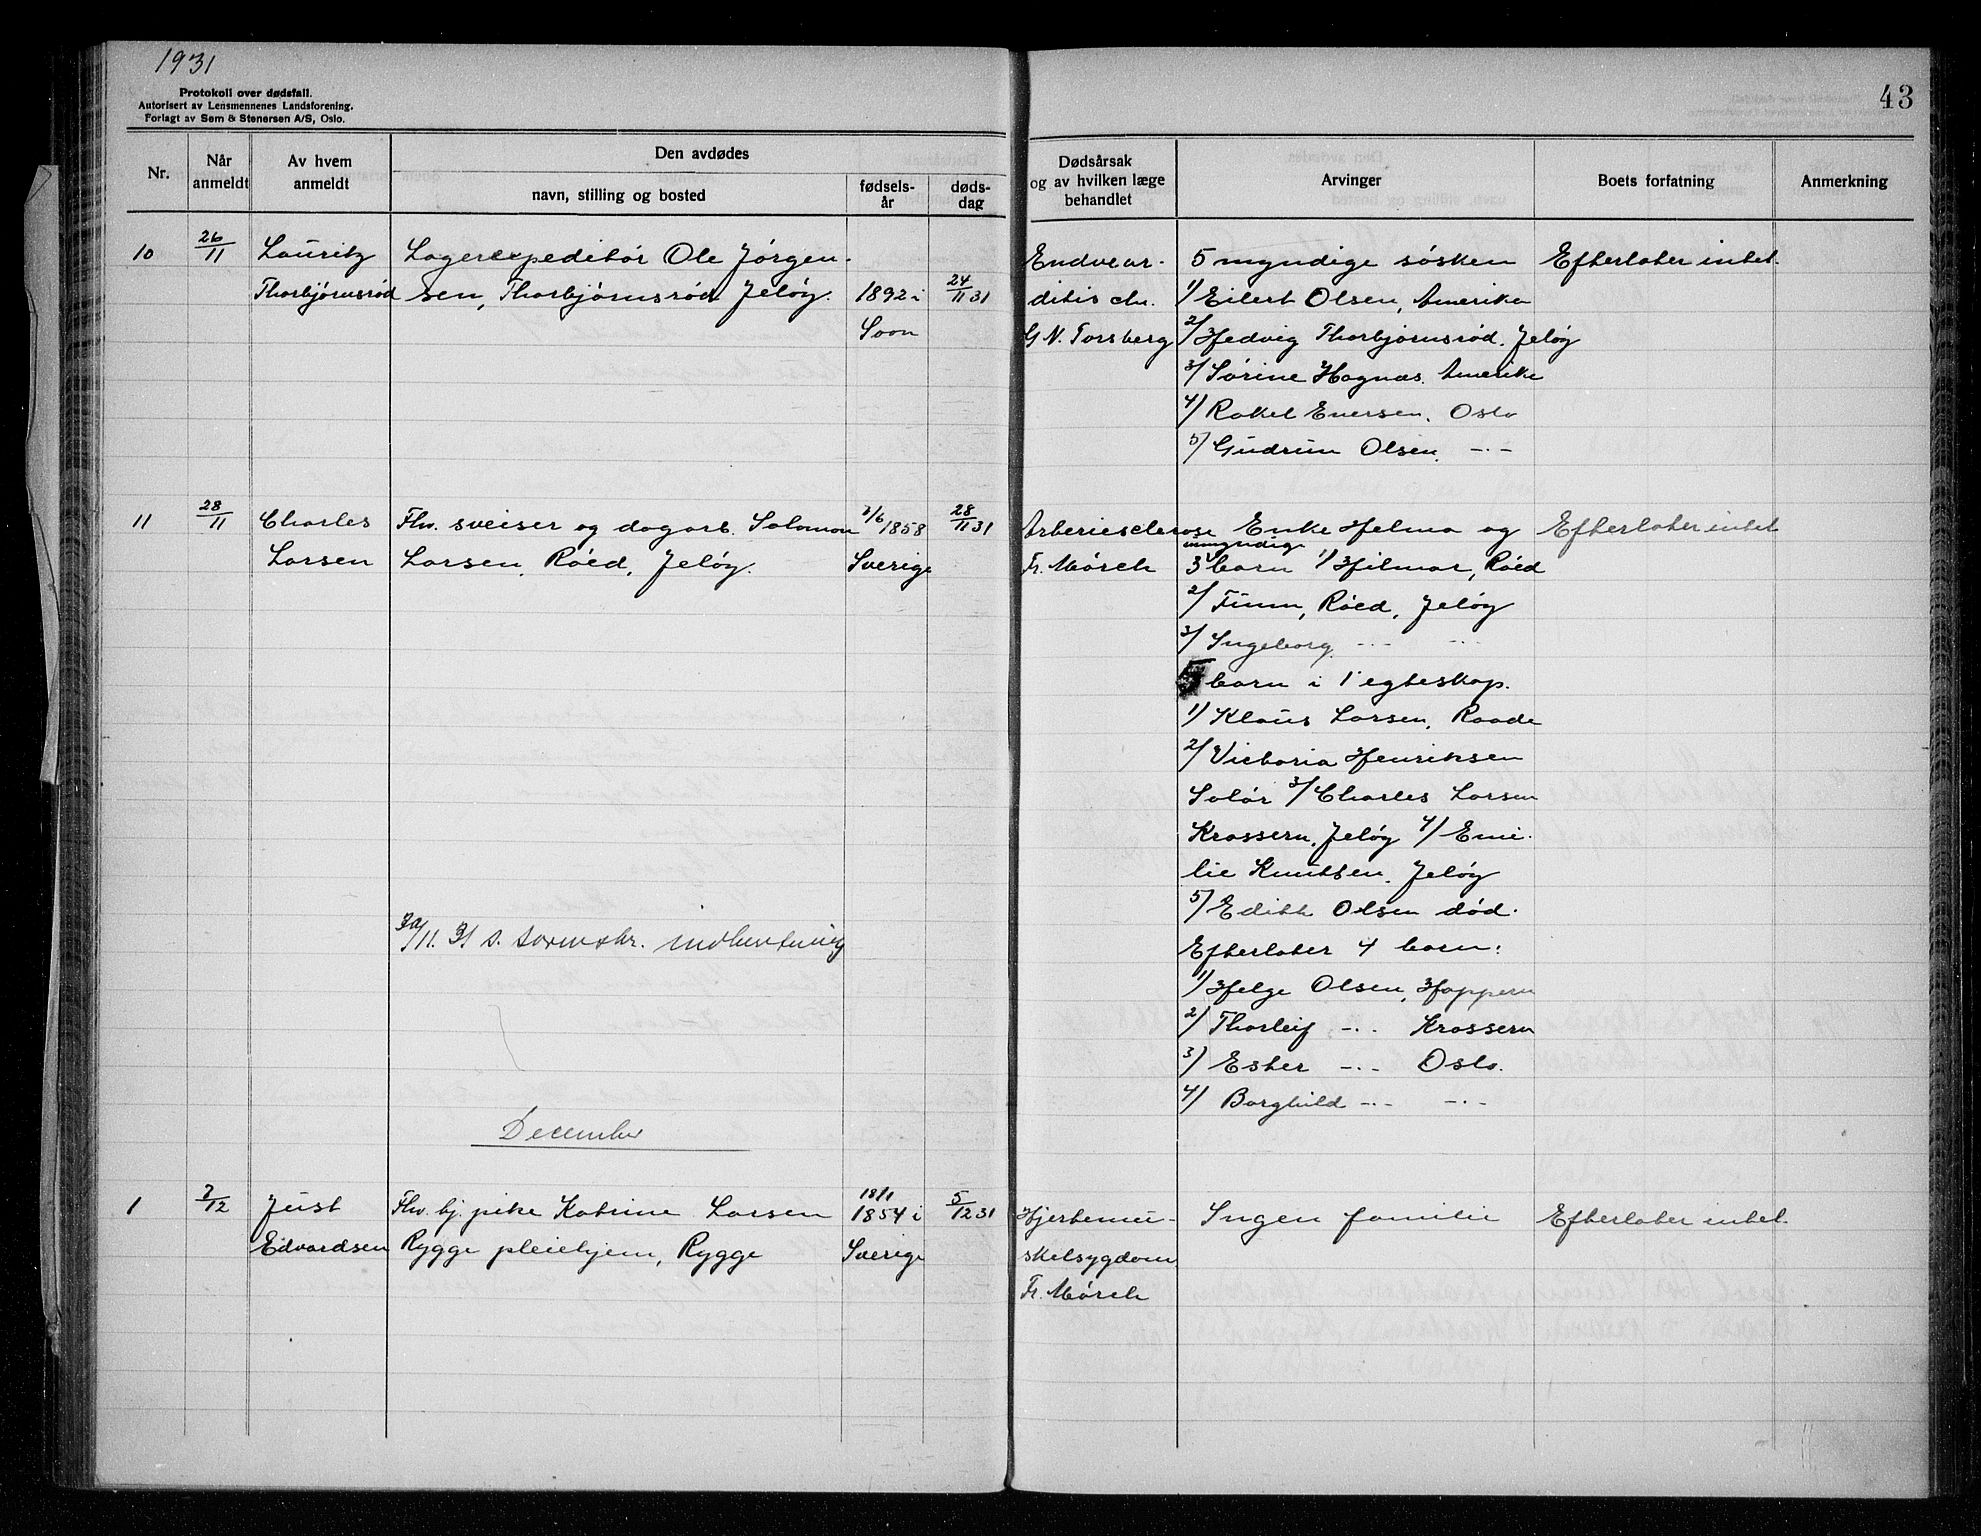 1931
Protokoll over dødsfall.
Autorisert av Lensmennenes Landsforening.
Forlagt av Sem & Stenersen A/S, Oslo.
43
Nr.
Når anmeldt
Av hvem anmeldt
Den avdødes
navn, stilling og bosted
fødsels-år
døds-dag
Dødsårsak og av hvilken læge behandlet
Arvinger
Boets forfatning
Anmerkning
10 26/11 Lauritz Lagerexpeditør Ole Jørgen-
Thorbjørnsrød sen, Thorbjørnsrød Jeløy. 1892 i 24/11 31
Soon
Endocar-
ditis chr.
G N. Torsberg
5 myndige søsken Efterlater intet.
1/ Eilert Olsen, Amerika
2/ Hedvig Thorbjørnsrød. Jeløy
3/ Sørine Hagnæs. Amerika
4/ Rakel Eversen. Oslo
5/ Gudrun Olsen. -·-
11 28/11 Charles Fhv. sveiser og dagarb. Salomon /6 1858 28/11 31
Larsen Larsen, Røed, Jeløy. Sverige
Arteriesclerose
Fr. Mørch
Enke Helma og Efterlater intet
umyndige
3 barn 1/ Hilmar, Røed
2/ Finn, Røed, Jeløy
3/ Ingeborg -·- -·-
5 barn i 1' egteskap.
1/ Klaus Larsen, Raade
2/ Victoria Henriksen
Solør 3/ Charles Larsen
Krossern, Jeløy 4/ Emi-
lie Knutsen. Jeløy
5/ Edith Olsen død.
Efterlater 4 barn:
1/ Helge Olsen, Hoppern
2/ Thorleif -·- Krossern
3/ Ester -·- Oslo.
4/ Borghild -·- -·-
30/11. 31 s.
December
1 7/12 Just Fhv. bj. pike Katrine Larsen 18/1 1854 i 5/12 31
Edvardsen Rygge pleiehjem, Rygge Sverige
Hjertemu-
skelsygdom
Fr. Mørch
Ingen familie Efterlater intet.